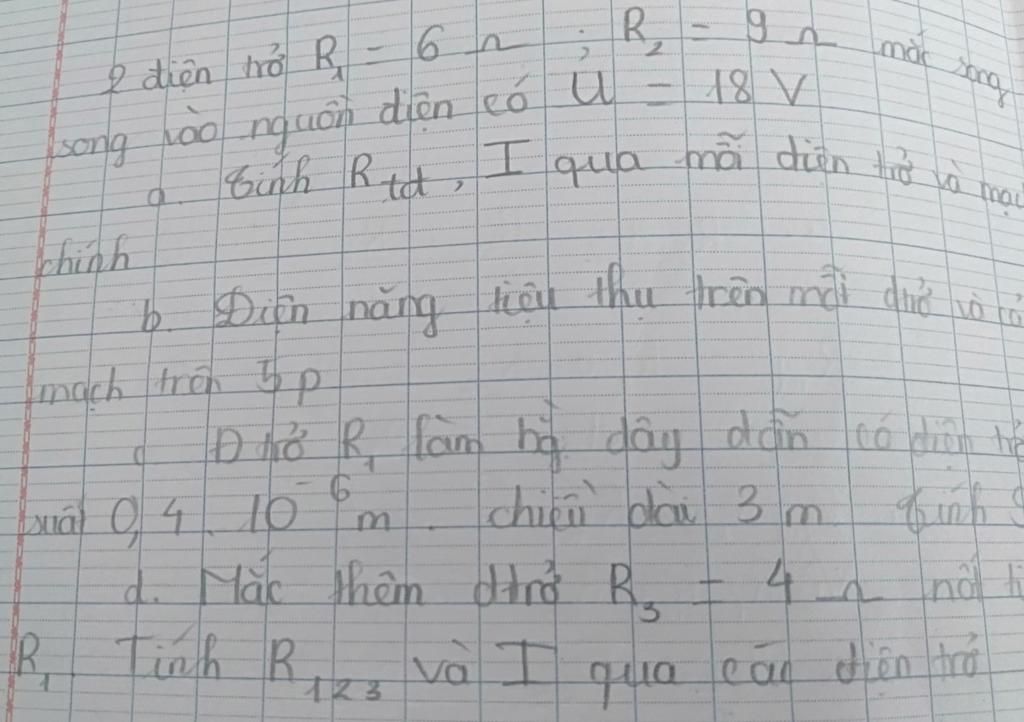 2 điện trở R₁ = 6 Ω ; R₂ = 9 Ω mắc song
song vào nguồn điện có U = 18 V
a. Tính Rtđ, I qua mỗi điện trở và mạch
chính
b. Điện năng tiêu thụ trên mỗi đtrở và cả
mạch trên 5p
c Đ trở R₁ làm bằng dây dẫn có điện trở
suất 0,4.10⁻⁶ m. chiều dài 3 m tính S
d. Mắc thêm đtrở R₃ = 4 Ω nối ti
R₁ Tính R₁₂₃ và I qua các điện trở